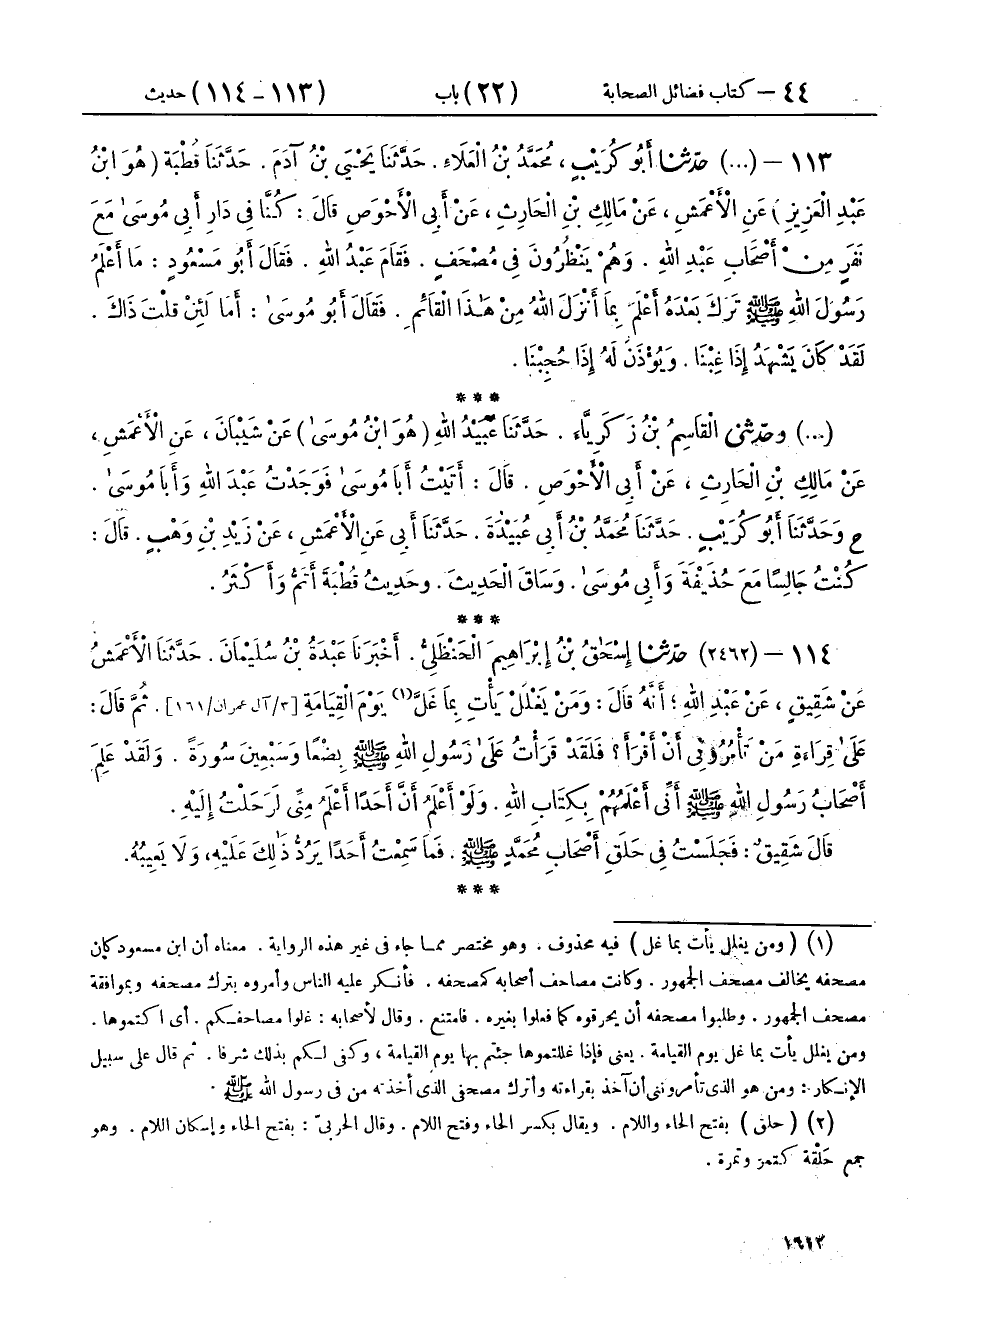 ٤٤ – كتاب فضائل الصحابة (٢٢) باب (١١٣-١١٤) حديث
١١٣ – (...) حَدَّثَنَا أَبُو كُرَيْبٍ، مُحَمَّدُ بْنُ الْعَلَاءِ. حَدَّثَنَا يَحْيَى بْنُ آدَمَ. حَدَّثَنَا قُطْبَةُ (هُوَ ابْنُ
عَبْدِ الْعَزِيزِ) عَنِ الْأَعْمَشِ، عَنْ مَالِكِ بْنِ الْحَارِثِ، عَنْ أَبِي الْأَحْوَصِ قَالَ: كُنَّا فِي دَارِ أَبِي مُوسَىٰ مَعَ
نَفَرٍ مِنْ أَصْحَابِ عَبْدِ اللهِ. وَهُمْ يَنْظُرُونَ فِي مُصْحَفٍ. فَقَامَ عَبْدُ اللهِ. فَقَالَ أَبُو مَسْعُودٍ: مَا أَعْلَمُ
رَسُولَ اللهِ ﷺ تَرَكَ بَعْدَهُ أَعْلَمَ بِمَا أَنْزَلَ اللهُ مِنْ هَـٰذَا الْقَائِمِ. فَقَالَ أَبُو مُوسَىٰ: أَمَا لَئِنْ قُلْتَ ذَاكَ.
لَقَدْ كَانَ يَشْهَدُ إِذَا غِبْنَا. وَيُؤْذَنُ لَهُ إِذَا حُجِبْنَا.
***
(...) وحَدَّثَنِي الْقَاسِمُ بْنُ زَكَرِيَّاءَ. حَدَّثَنَا عُبَيْدُ اللهِ (هُوَ ابْنُ مُوسَىٰ) عَنْ شَيْبَانَ، عَنِ الْأَعْمَشِ،
عَنْ مَالِكِ بْنِ الْحَارِثِ، عَنْ أَبِي الْأَحْوَصِ. قَالَ: أَتَيْتُ أَبَا مُوسَىٰ فَوَجَدْتُ عَبْدَ اللهِ وَأَبَا مُوسَىٰ.
ح وَحَدَّثَنَا أَبُو كُرَيْبٍ. حَدَّثَنَا مُحَمَّدُ بْنُ أَبِي عُبَيْدَةَ. حَدَّثَنَا أَبِي عَنِ الْأَعْمَشِ، عَنْ زَيْدِ بْنِ وَهْبٍ. قَالَ:
كُنْتُ جَالِسًا مَعَ حُذَيْفَةَ وَأَبِي مُوسَىٰ. وَسَاقَ الْحَدِيثَ. وحَدِيثُ قُطْبَةَ أَتَمُّ وَأَكْثَرُ.
***
١١٤ – (٢٤٦٢) حَدَّثَنَا إِسْحَٰقُ بْنُ إِبْرَاهِيمَ الْحَنْظَلِيُّ. أَخْبَرَنَا عَبْدَةُ بْنُ سُلَيْمَانَ. حَدَّثَنَا الْأَعْمَشُ
عَنْ شَقِيقٍ، عَنْ عَبْدِ اللهِ؛ أَنَّهُ قَالَ: وَمَنْ يَغْلُلْ يَأْتِ بِمَا غَلَّ (١) يَوْمَ الْقِيَامَةِ [٣/آل عمران/١٦١]. ثُمَّ قَالَ:
عَلَىٰ قِرَاءَةِ مَنْ تَأْمُرُونِي أَنْ أَقْرَأَ؟ فَلَقَدْ قَرَأْتُ عَلَىٰ رَسُولِ اللهِ ﷺ بِضْعًا وَسَبْعِينَ سُورَةً. وَلَقَدْ عَلِمَ
أَصْحَابُ رَسُولِ اللهِ ﷺ أَنِّي أَعْلَمُهُمْ بِكِتَابِ اللهِ. وَلَوْ أَعْلَمُ أَنَّ أَحَدًا أَعْلَمُ مِنِّي لَرَحَلْتُ إِلَيْهِ.
قَالَ شَقِيقٌ: فَجَلَسْتُ فِي حَلَقِ أَصْحَابِ مُحَمَّدٍ ﷺ. فَمَا سَمِعْتُ أَحَدًا يَرُدُّ ذَٰلِكَ عَلَيْهِ، وَلَا يَعِيبُهُ.
***
(١) (ومن يغلل يأت بما غل) فيه محذوف. وهو مختصر مما جاء في غير هذه الرواية. معناه أن ابن مسعود كان
مصحفه يخالف مصحف الجمهور. وكانت مصاحف أصحابه كمصحفه. فأنكر عليه الناس وأمروه بترك مصحفه وبموافقة
مصحف الجمهور. وطلبوا مصحفه أن يحرقوه كما فعلوا بغيره. فامتنع. وقال لأصحابه: غلوا مصاحفكم. أي اكتموها.
ومن يغلل يأت بما غل يوم القيامة. يعني فإذا غللتموها جئتم بها يوم القيامة، وكفى لكم بذلك شرفا. ثم قال على سبيل
الإنكار: ومن هو الذي تأمرونني أن آخذ بقراءته وأترك مصحفي الذي أخذته من في رسول الله ﷺ.
(٢) (حلق) بفتح الحاء واللام. ويقال بكسر الحاء وفتح اللام. وقال الحربيّ: بفتح الحاء وإسكان اللام. وهو
جمع حَلْقة كتمر وتمرة.
١٩١٣